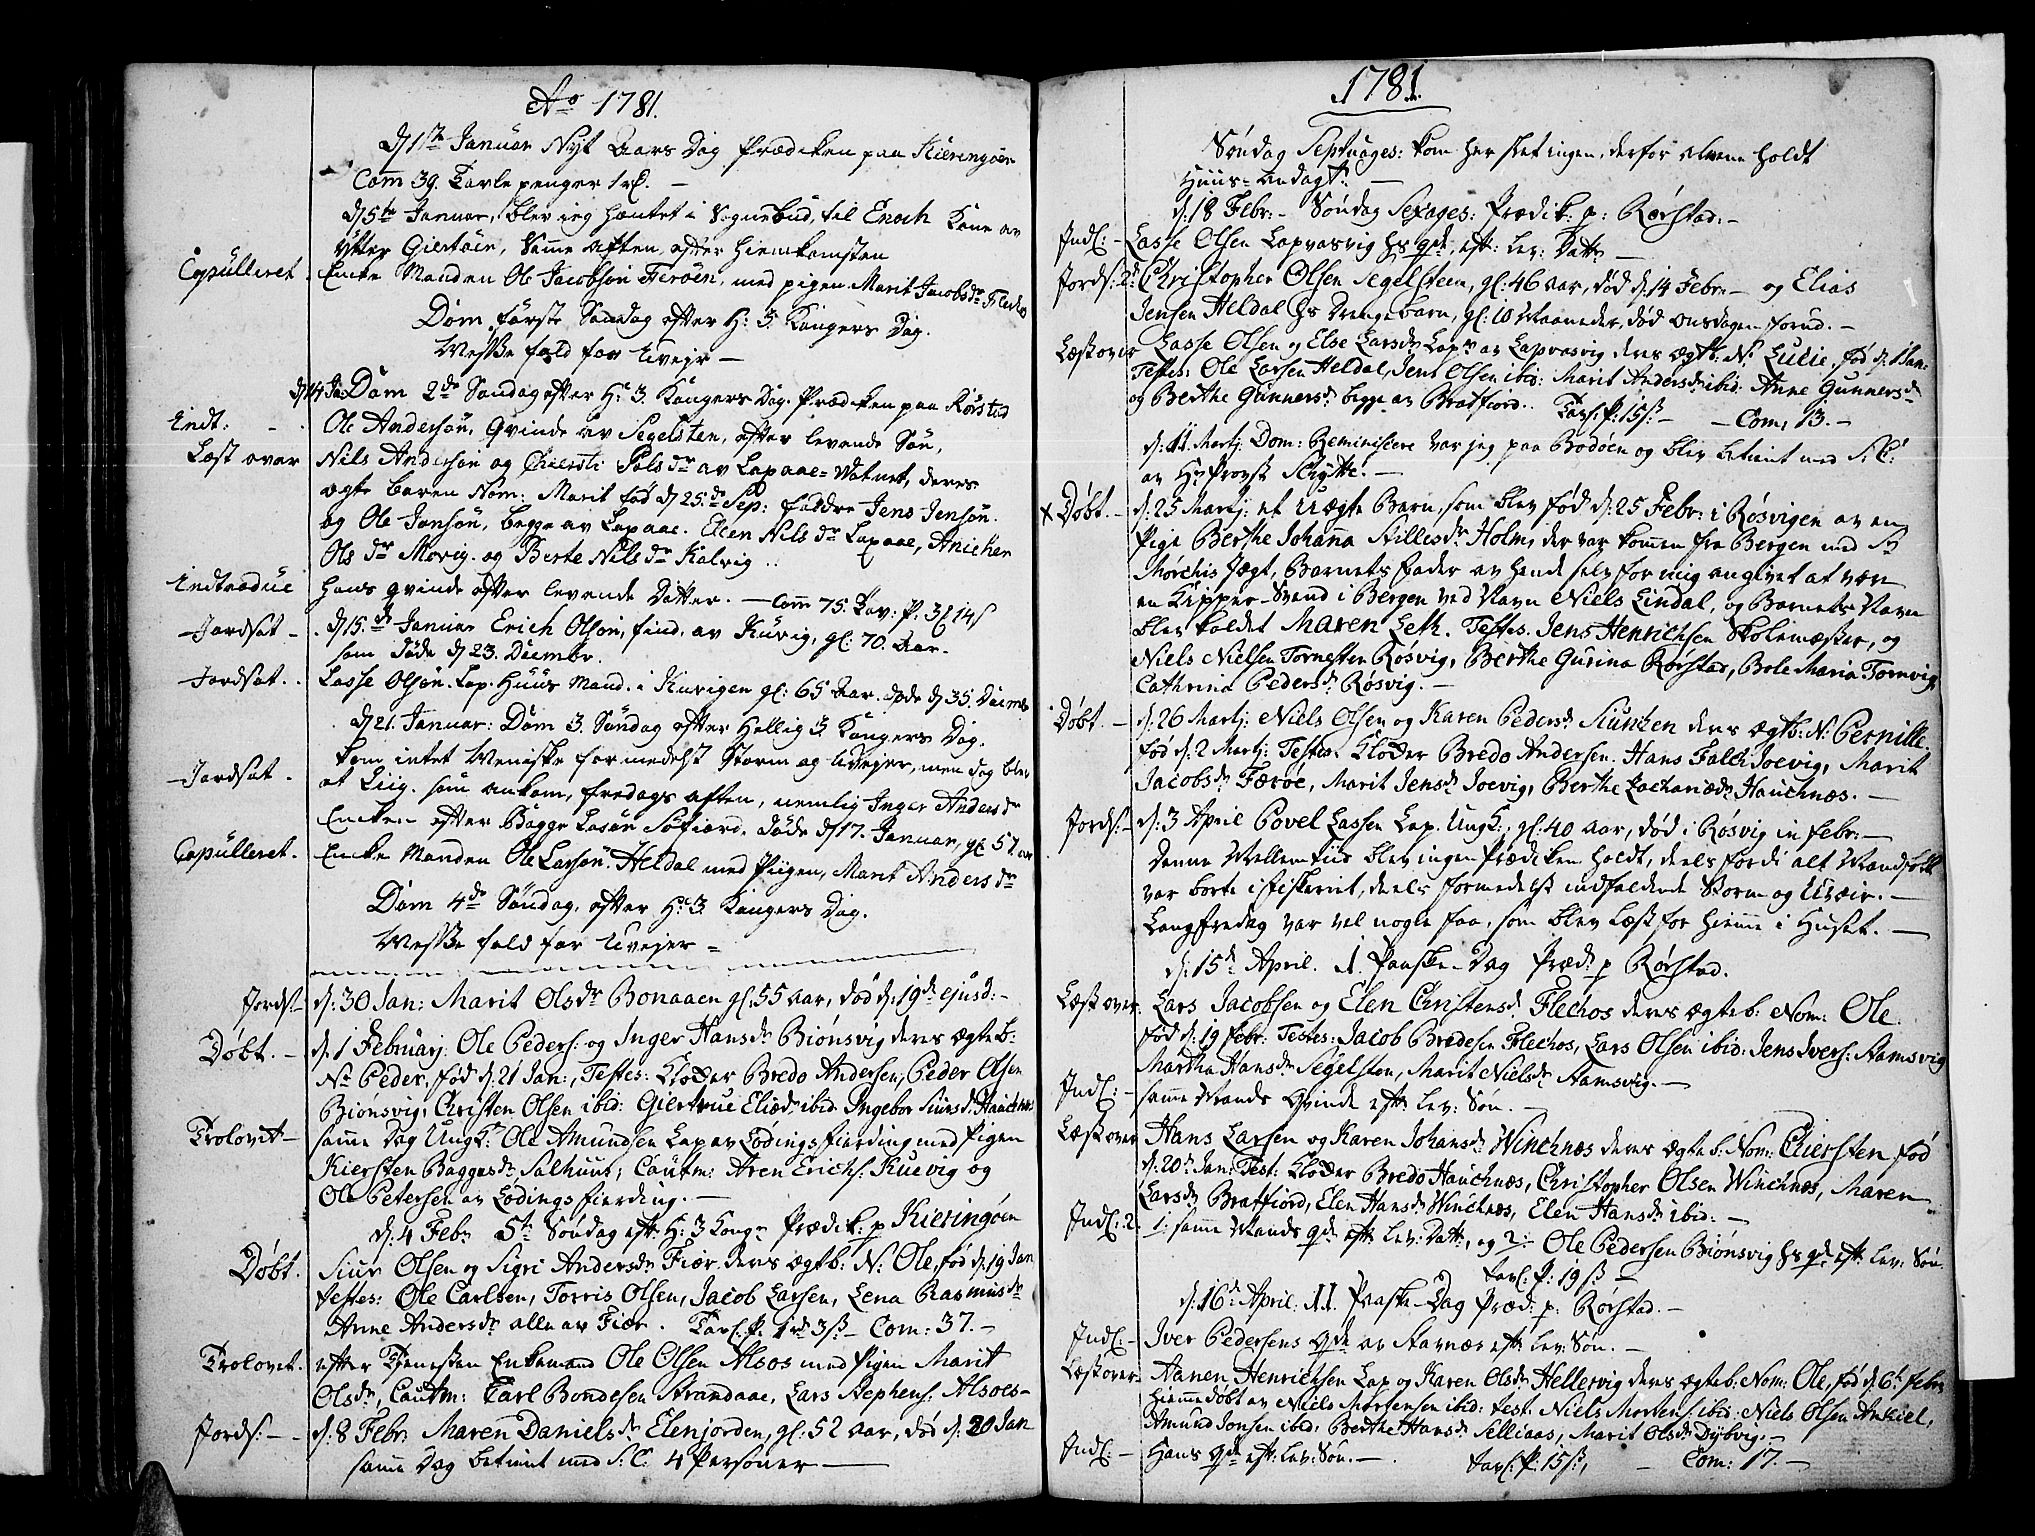 Ao 1781.
d 1te Januar Nyt Aars Dag Prædiken paa Kieringöen
Com 39. Tavle penger 1 rd. —
d 5te Januar, blev jeg hentet i Sognebud, til Enoch Kone av
Ytter Giertöen, Samme aften efter hiemkomsten
Copülleret. Encke Manden Ole Jacobsön Feröen, med pigen Marit Jacobsdr
Dom. förste Söndag efter H: 3 Kongers Dag.
Messe fald for Uvejr —
d 14 Ja: Dom 2de Söndag efter H: 3. Kongers Dag. Prædiken paa Rörstad
Indt: - . Ole Andersön, Qvinde av Segelsten, efter levende Sön,
Læst over Nils Andersön og Chiersti Pols dr av Lapaae-Watnet, deres
ægte barn Nom: Marit föd d 25de Sep: faddre Jens Jensön.
og Ole Jonsön, begge av Lapaae. Elen Nils dr Lapaae, Anichen
Ols dr Movig. og Berte Nils dr Kalvig ..
Indtroduc hans qvinde efter levende Datter. — Com 75. Tav: P. 3 14 s
Jordsat - . d 15de Januar Erich Olsön, find. av Kuvig, gl. 70. Aar.
som döde d 23. Decembr.
Jordsat. . Lasse Olsön. Lap. Huus Mand. i Kuvigen gl: 65 Aar. döde d 35. Decemb
d 21. Januar: Dom 3. Söndag efter Hellig 3 Kongers Dag.
kom intet Meniske formedelst Storm og Uvejer, men dog blev
Jordsat . et Liig. som ankom, fredags aften, nemlig Inger Anders dr
Encken efter Bagge Lasön Söfiord, döde d 17. Januar, gl 57. aar
Copülleret. Encke Manden Ole Larsön. Heldal med Piigen, Marit Anders dr
Dom 4de Söndag, efter H: 3. Kongers Dag.
Messe fald for Uvejer =
Jords: d: 30 Jan: Marit Olsdr Bonaaen gl: 55 aar, död d: 19de ejusd: -
Döbt. - d. 1 Februarj: Ole Peders: og Inger Hansdr Biönsvig deres ægteb:
Nn Peder, föd d: 21 Jan:, Testes: Klocker Bredo Andersen, Peder Olsen
Biönsvig, Christen Olsen ibid: Giertrue Eliædr ibid. Ingebor Siursdr Hauchnes
Trolovet - samme Dag Ungk: Ole Amundsen Lap av Lödingsfierding med Pigen
Kiersten Baggesdr Salhuus, Cautm: Aren Erichs: Kuevig og
Ole Petersen av Lödingsfierding. —
d. 4 Febr 5te Söndag eft: H: 3 Kongr Prædik: p Kieringöen
Döbt. Siur Olsen og Sigri Andersdr Fiær deres ægtb: N: Ole, föd d: 19 Jan
testes: Ole Carlsen, Torris Olsen, Jacob Larsen, Lena Rasmusdr
Anne Andersdr alle av Fiær. Tavl: P. 1rd 3ß — Com: 37. —
Trolovet. efter Tienesten Enkemand Ole Olsen Alsos med Pigen Marit
Olsdr, Cautm: Carl Bondesen Strandaae, Lars Stephens: Alsoes -
Jords: - - d. 8 Febr: Maren Daniels dr Elenjorden, gl: 52 aar, död d. 20 Jan
samme Dag betient med S. C. 4 Personer —
1781.
Söndag Septuages: kom her slet ingen, derfor alene holdt
Huus-andagt. —
d: 18 Febr: - Söndag Sexages: Prædik: p: Rörstad: -
Indl: - Lasse Olsen Lapvasvig hs qde, eft: lev: Dattr —
Jords: 2: Christopher Olsen Segelsteen, gl: 46 aar, död d: 14 Febr: — og Elias
Jensen Heldal hs Drenge barn, gl: 10 Maaneder, död onsdagen forud. —
Læst over Lasse Olsen og Else Larsdr Lapr av Lapvasvig deres ægtb: N: Lucie, föd d: 1 Jan:
Testes: Ole Larsen Heldal, Jens Olsen ibid: Marit Andersdr ibid: Anne Gunnersdr
og Berthe Gunnersdr begge av Bratfiord. Tavl: P: 15 ß — — Com: 13. —
d: 11 Martj: Dom: Reminiscere var jeg paa Bodöen og blev betient med S: C:
av Hr Provst Schytte. —
x Döbt. - d: 25 Martj: et Uægte Barn, som blev föd d: 25 Febr: i Rösvigen av en
Pige Berthe Johanna Stillesdr Holm, der var kommen fra Bergen med Sr
Mörchis Jægt, Barnets Fader av hende selv for mig angivet at være
en Kipper-Svend i Bergen ved Navn Niels Lindal, og Barnets Navn
blev kaldet Maren Leth. Testes. Jens Henrichsen Skolemæster, og
Niels Nielsen Tornesten Rösvig, Berthe Gurina Rörstad, Bole Maria Tornvig,
Cathrina Pedersdr Rösvig. —
Döbt. - d: 26 Martj: Niels Olsen og Karen Pedersdr Siunken deres ægtb: N: Pernille
föd d: 2 Martj: Testes: Klocker Bredo Andersen. Hans Falch Joevig, Marit
Jacobsdr Færöe, Marit Jensdr Joevig, Berthe Zachariædr Hauchnæs. —
Jords: - d: 3 April Povel Lassen Lap. Ungk:, gl: 40 aar, död i Rösvig in febr: —
Denne Mellemtiid blev ingen Prædiken holdt, deels fordi alt Mandfolk
var borte i fiskeriet, deels formedelst indfaldende Storm og Uveir. —
Langfredag var vel nogle faa, som blev læst for hiemme i Huset. —
d: 15de April. 1. Paaske-Dag Præd: p Rörstad.
Læst over. Lars Jacobsen og Elen Christensdr Flechos deres ægteb: Nom: Ole.
föd d: 19 febr: Testes: Jacob Bredesen Flechos, Lars Olsen ibid: Jens Ivers: Stamsvig
Martha Hansdr Segelsten, Marit Nielsdr Stamsvig. —
Indl: - samme Mands Qvinde eft: lev: Sön. —
Læst over Hans Larsen og Karen Johansdr Winchnæs deres ægteb: Nom: Chiersten, föd
d: 20de Jan: Test: Klocker Bredo Hauchnæs, Christopher Olsen Winchnæs, Maren
Larsdr Bratfiord, Elen Hansdr Winchnæs, Elen Hansdr ibid: —
Indl: 2. 1: samme Mands qde eft: lev: Datt:, og 2: Ole Pedersen Biönsvig hs qde eft: lev: Sön.
Tavl: P: 19 ß —
d: 16de April: II. Paaske-Dag Præd: p: Rörstad. —
Indl: - Iver Pedersens Qde av Stavnæs eft: lev: Sön. —
Læst over Aanen Henrichsen Lap og Karen Olsdr Hellervig deres ægteb: Nom: Ole, föd d: 6te febr
hiemmedöbt av Niels Mortensen ibid: test: Niels Mortens: ibid: Niels Olsen Ankiel,
Amund Jonsen ibid: Berthe Hansdr Selliaas, Marit Olsdr Dybvig. —
Indl: - Hans Qde eft: lev: Sön. — . Tavl: P: 15 ß, — Com: 17. —